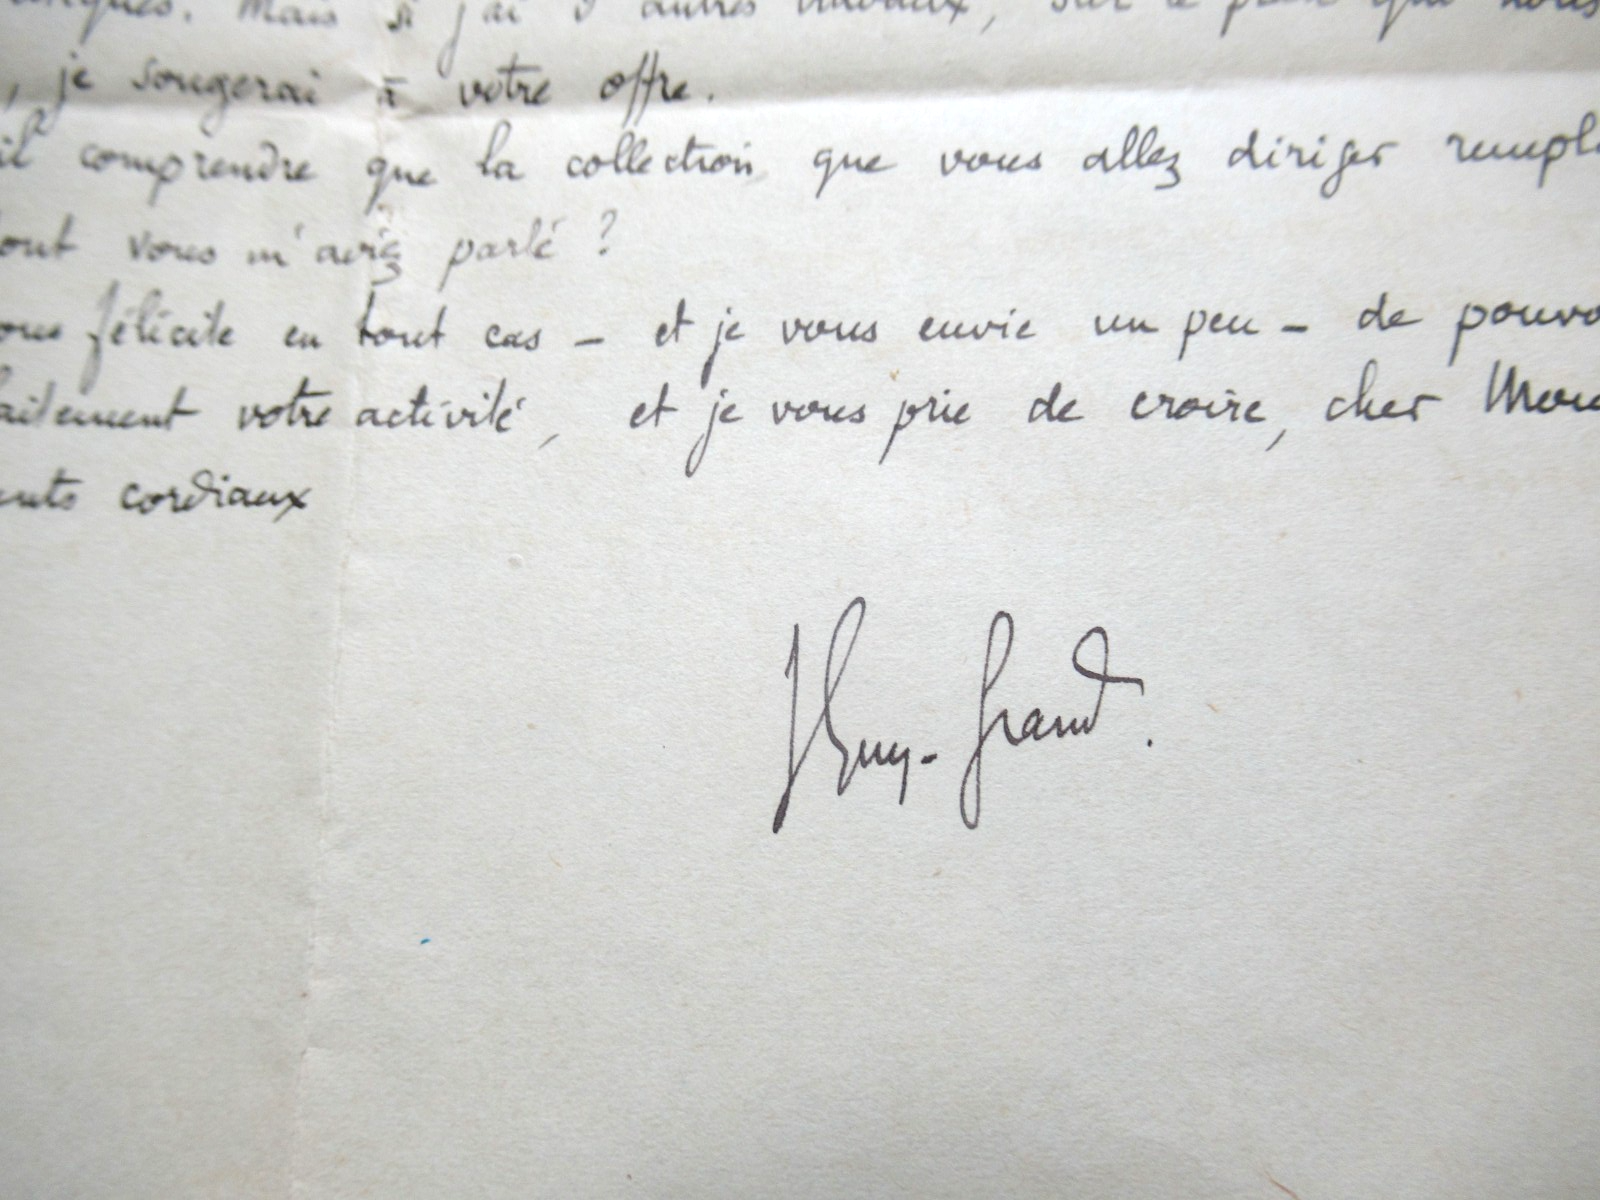 Mais si j'ai d'autres travaux, sur le plan que nous
, je songerai à votre offre.
il comprendre que la collection que vous allez diriger rempla
dont vous m'aviez parlé ?
ous félicite en tout cas – et je vous envie un peu – de pouvo
aitement votre activité, et je vous prie de croire, cher Mons
ents cordiaux
J Guy-Grand.